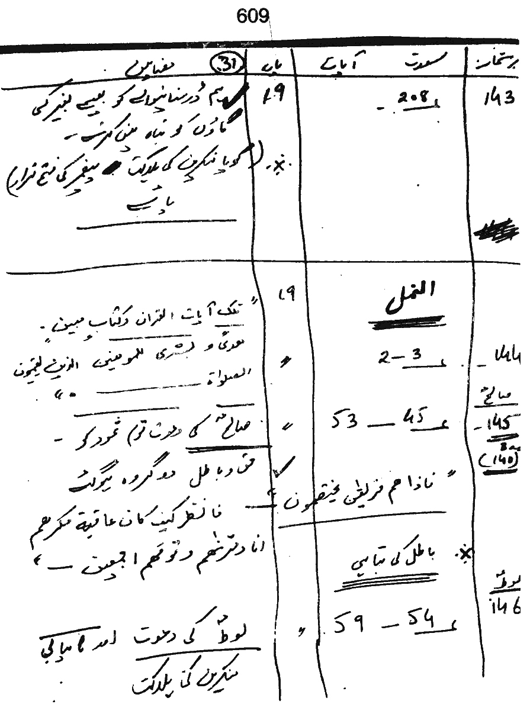 609
نمبر شمار سورت آیات پارہ (31) مضامین
143 208 19 ہم ڈر سنانیوالے کو بھیجے بغیر کسی
گاؤں کو تباہ نہیں کرتے -
※ (گویا منکرین کی ہلاکت پیغمبر کی فتح قرار)
پائی
النمل 19 "تلک آیات القران وکتاب مبین -
144 2 – 3 " ھدیً و بشریٰ للمومنین الذین یقیمون
الصلواۃ ـــــ "
صالحؑ
145 45 – 53 " صالحؑ کی دعوت قوم ثمود کو -
(140) حق و باطل دو گروہ ہوگئے
"فاذا ھم فریقٰن یختصمون"
فانظر کیف کان عاقبۃ مکرھم
انا دمرنٰھم وقومھم اجمعین — "
※ باطل کی تباہی
لوطؑ
146 54 – 59 " لوطؑ کی دعوت اور کامیابی
منکرین کی ہلاکت